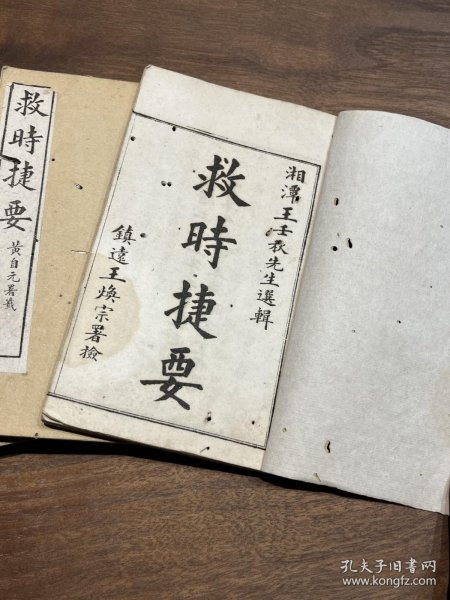 湘潭王壬秋先生選輯
救時捷要
鎮遠王煥宗署檢
救時捷要
黃自元署籤
孔夫子旧书网
www.kongfz.com